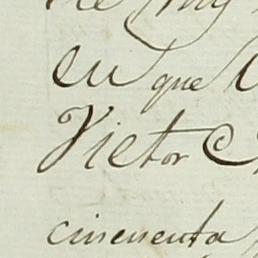 en que
Victor
cincuenta